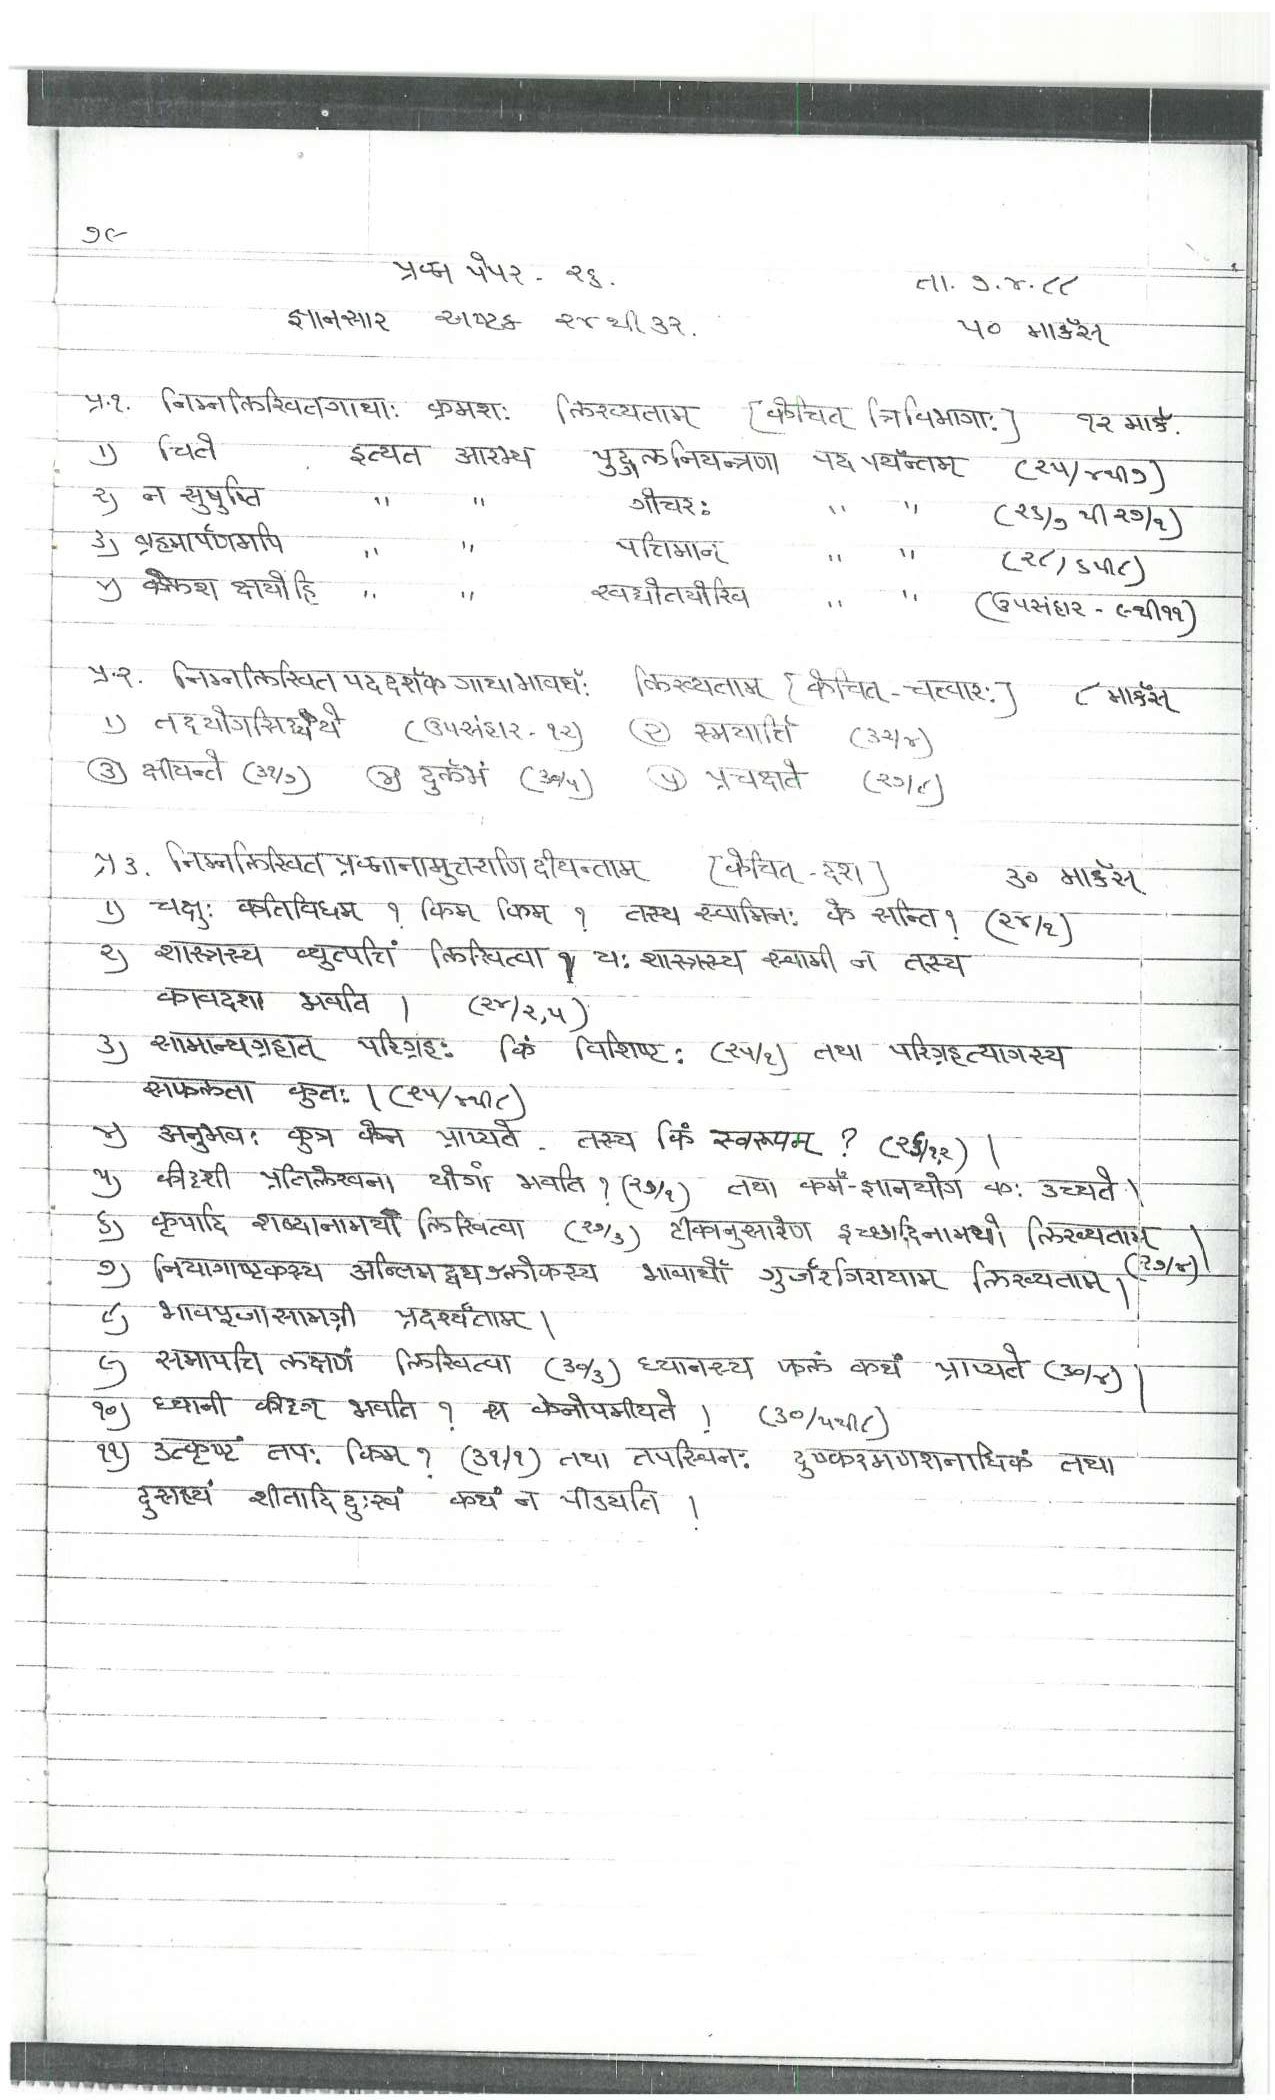 ૭૯
પ્રશ્ન પેપર - ૨૬.
તા. ૭.૪.૮૮
ज्ञानसार અષ્ટક ૨૪ થી ૩૨.
૫૦ मार्कस्
प्र.१. निम्नलिखितगाथाः क्रमशः लिख्यताम् [केचित् त्रिविभागाः] १२ मार्क.
१) चित्ते इत्यत आरभ्य पुद्गलनियन्त्रणा पद पर्यन्तम् (૨૫/૪થી૭)
२) न सुषुप्ति " " गोचरः " " (૨૬/૭ થી ૨૭/૧)
३) ब्रह्मार्पणमपि " " पत्तिमान् " " (૨૮/૬થી૮)
४) क्लेश क्षयो हि " " खद्योतयोरिव " " (ઉપસંહાર - ૯થી૧૧)
प्र.२. निम्नलिखित पद दर्शक गाथाभावार्थः लिख्यताम् [केचित् - चत्वारः] ૮ मार्कस्
१) तदयोगसिद्ध्यर्थे (ઉપસંહાર - ૧૨) (૨) स्मयार्त्ति (૩૨/૪)
(૩) क्षीयन्ते (૩૧/૭) (૪) दुर्लभं (૩૦/૫) (૫) प्रचक्षते (૨૭/૮)
प्र ३. निम्नलिखित प्रश्नानामुत्तराणि दीयन्ताम् [केचित् - दश] ૩૦ मार्कस्
१) चक्षुः कतिविधम् ? किम् किम् ? तस्य स्वामिनः के सन्ति ? (૨૪/૧)
२) शास्त्रस्य व्युत्पत्तिं लिखित्वा यः शास्त्रस्य स्वामी न तस्य
कावदशा भवति । (૨૪/૨,૫)
३) सामान्यग्रहात् परिग्रहः किं विशिष्टः (૨૫/૧) तथा परिग्रहत्यागस्य
सफलता कुतः । (૨૫/૪થી૮)
४) अनुभवः कुत्र केन प्राप्यते - तस्य किं स्वरूपम् ? (૨૬/૧,૨) ।
५) कीदृशी प्रतिलेखना योगो भवति ? (૨૭/૧) तथा कर्म-ज्ञानयोग कः उच्यते ।
६) कृपादि शब्दानामर्थो लिखित्वा (૨૭/૩) टीकानुसारेण इच्छादिनामर्थो लिख्यताम् । (૨૭/૪)
७) नियागाष्टकस्य अन्तिमद्वयश्लोकस्य भावार्थो गुर्जरगिरायाम् लिख्यताम् ।
८) भावपूजासामग्री प्रदर्श्यताम् ।
९) समापत्ति लक्षणं लिखित्वा (૩૦/૩) ध्यानस्य फलं कथं प्राप्यते (૩૦/૪) ।
१०) ध्यानी कीदृग् भवति ? स केनोपमीयते ! (૩૦/૫થી૮)
११) उत्कृष्टं तपः किम् ? (૩૧/૧) तथा तपस्विनः दुष्करमणशनाधिकं तथा
दुसह्यं शीतादि दुःखं कथं न पीडयति ।